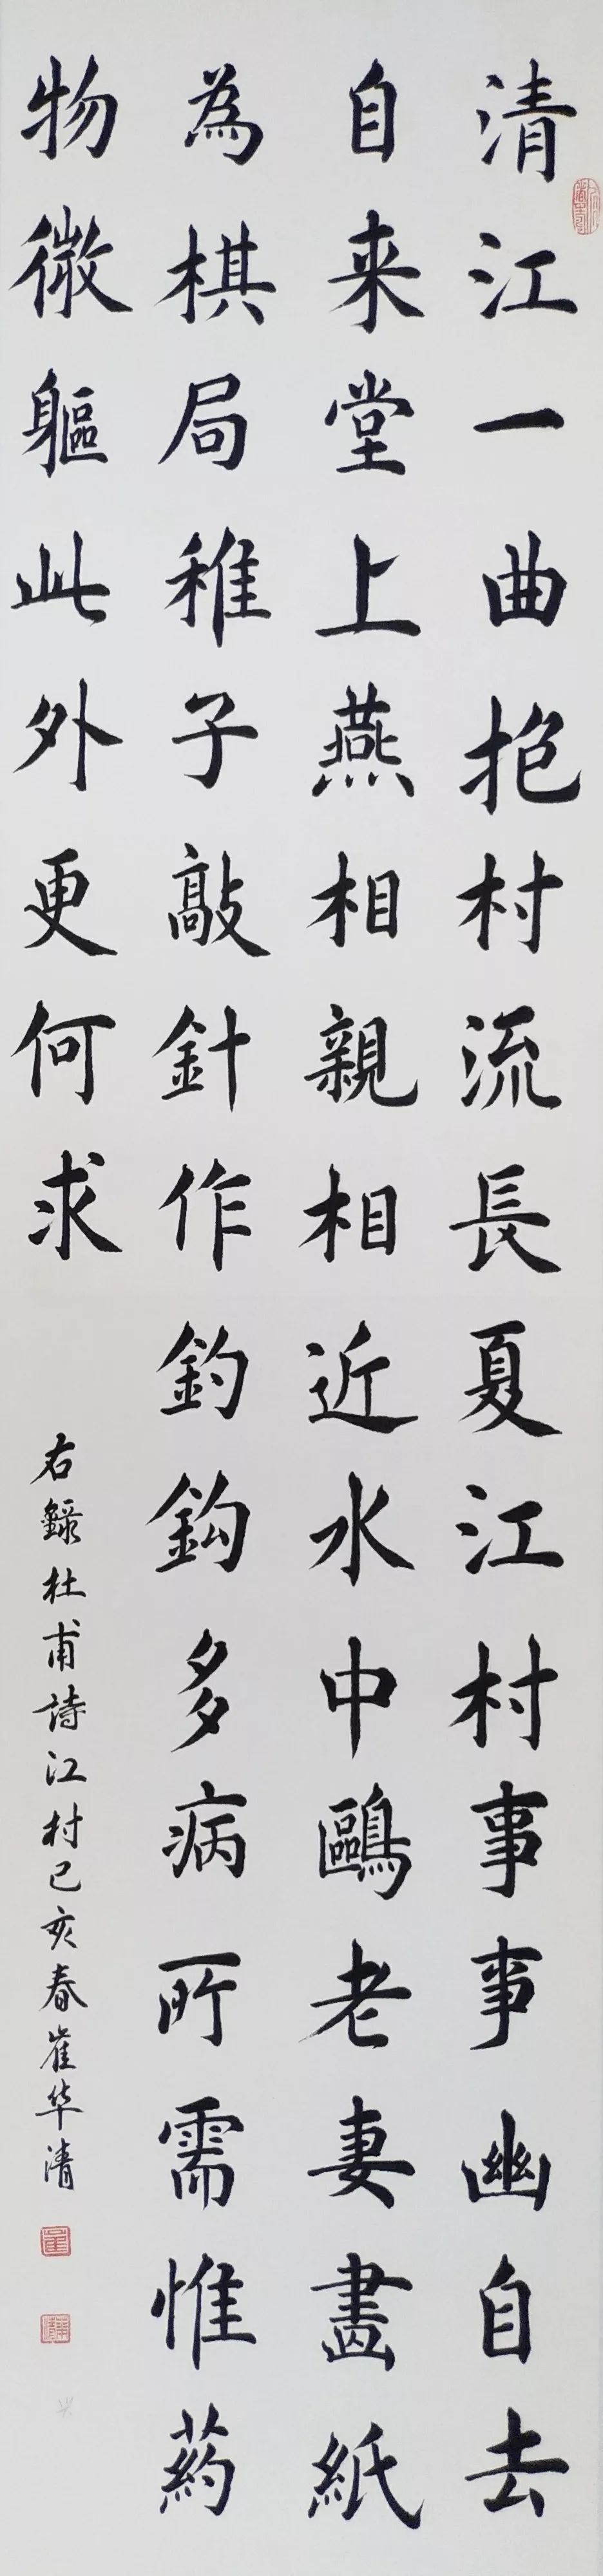 清江一曲抱村流長夏江村事事幽自去
自来堂上燕相親相近水中鷗老妻畫紙
為棋局稚子敲針作釣鈎多病所需惟葯
物微軀此外更何求
右錄杜甫詩江村已亥春崔华清